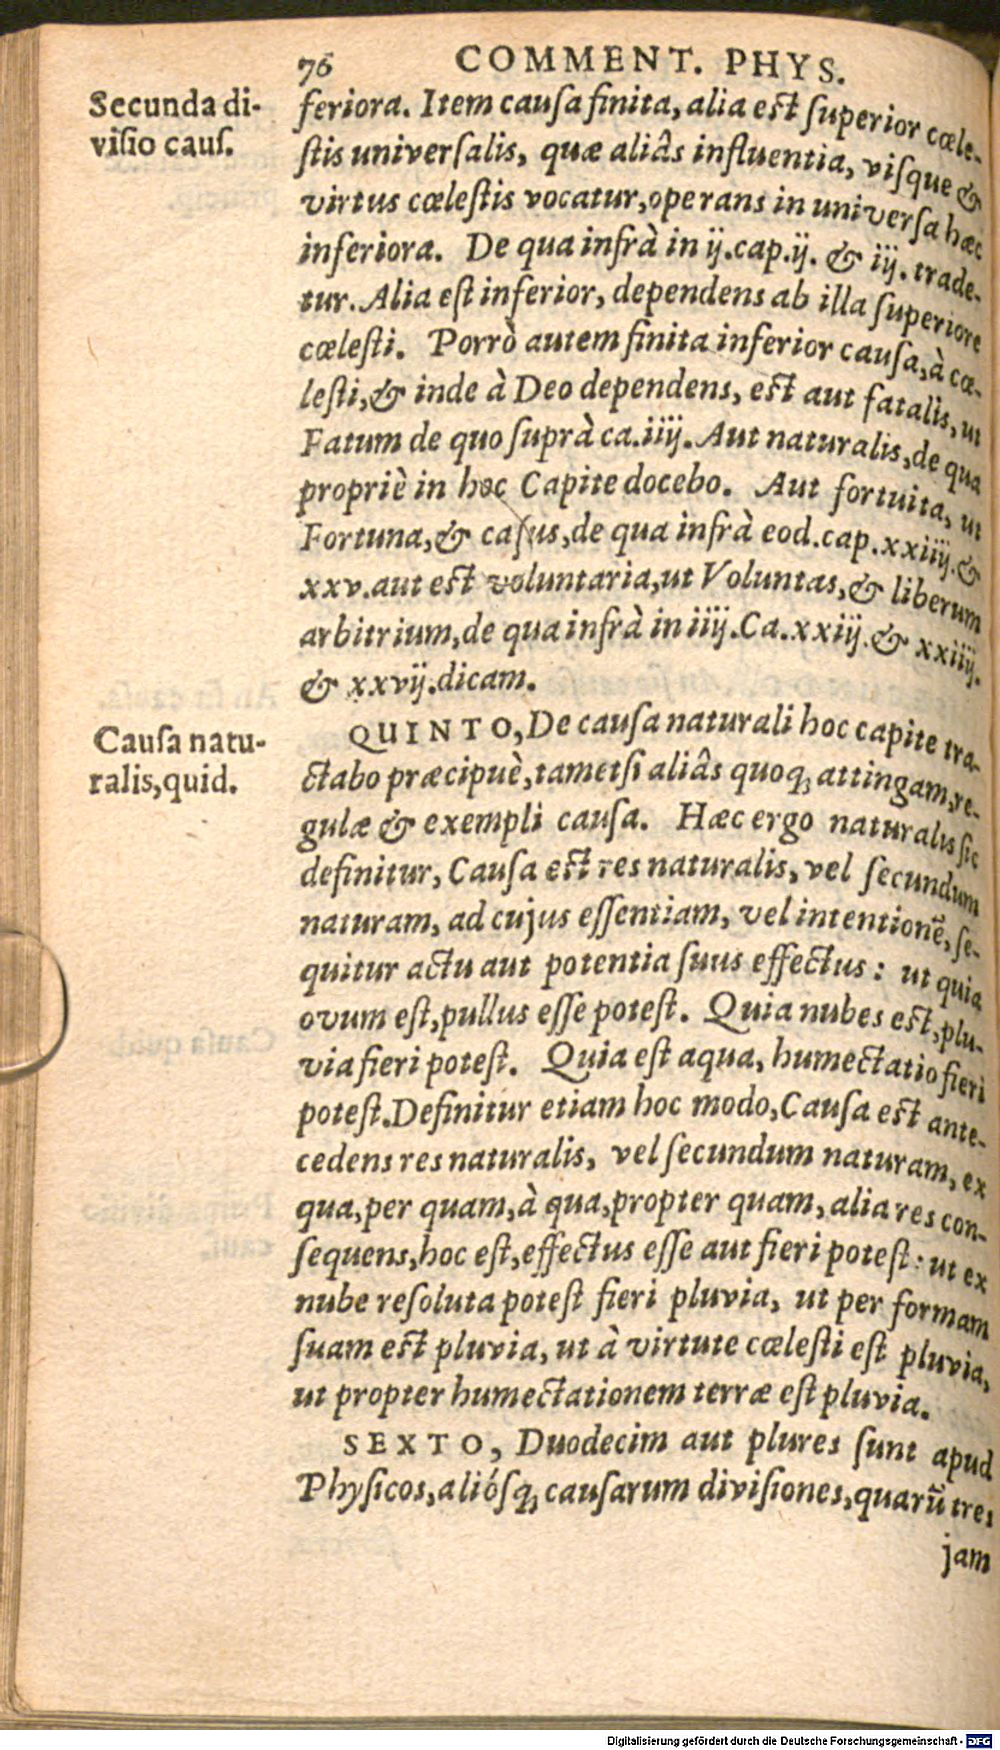 76 COMMENT. PHYS.
Secunda di-
viſio cauſ.
feriora. Item cauſa finita, alia eſt ſuperior cœle-
ſtis univerſalis, quæ aliâs influentia, viſque &
virtus cœleſtis vocatur, operans in univerſa hæc
inferiora. De qua infrà in ij. cap. ij. & iij. trade-
tur. Alia eſt inferior, dependens ab illa ſuperiore
cœleſti. Porrò autem finita inferior cauſa, à cœ-
leſti, & inde à Deo dependens, eſt aut fatalis, ut
Fatum de quo ſuprà ca. iiij. Aut naturalis, de qua
propriè in hoc Capite docebo. Aut fortuita, ut
Fortuna, & caſus, de qua infrà eod. cap. xxiiij. &
xxv. aut eſt voluntaria, ut Voluntas, & liberum
arbitrium, de qua infrà in iiij. Ca. xxiij. & xxiiij.
& xxvij. dicam.
Cauſa natu-
ralis, quid.
QUINTO, De cauſa naturali hoc capite tra-
ctabo præcipuè, tametſi aliâs quoq; attingam, re-
gulæ & exempli cauſa. Hæc ergo naturalis ſic
definitur, Cauſa eſt res naturalis, vel ſecundum
naturam, ad cujus eſſentiam, vel intentionē, ſe-
quitur actu aut potentia ſuus effectus: ut quia
ovum eſt, pullus eſſe poteſt. Quia nubes eſt, plu-
via fieri poteſt. Quia eſt aqua, humectatio fieri
poteſt. Definitur etiam hoc modo, Cauſa eſt ante-
cedens res naturalis, vel ſecundum naturam, ex
qua, per quam, à qua, propter quam, alia res con-
ſequens, hoc eſt, effectus eſſe aut fieri poteſt: ut ex
nube reſoluta poteſt fieri pluvia, ut per formam
ſuam eſt pluvia, ut à virtute cœleſti eſt pluvia,
ut propter humectationem terræ eſt pluvia.
SEXTO, Duodecim aut plures ſunt apud
Phyſicos, alióſq; cauſarum diviſiones, quarū tres
jam
Digitalisierung gefördert durch die Deutsche Forschungsgemeinschaft - DFG